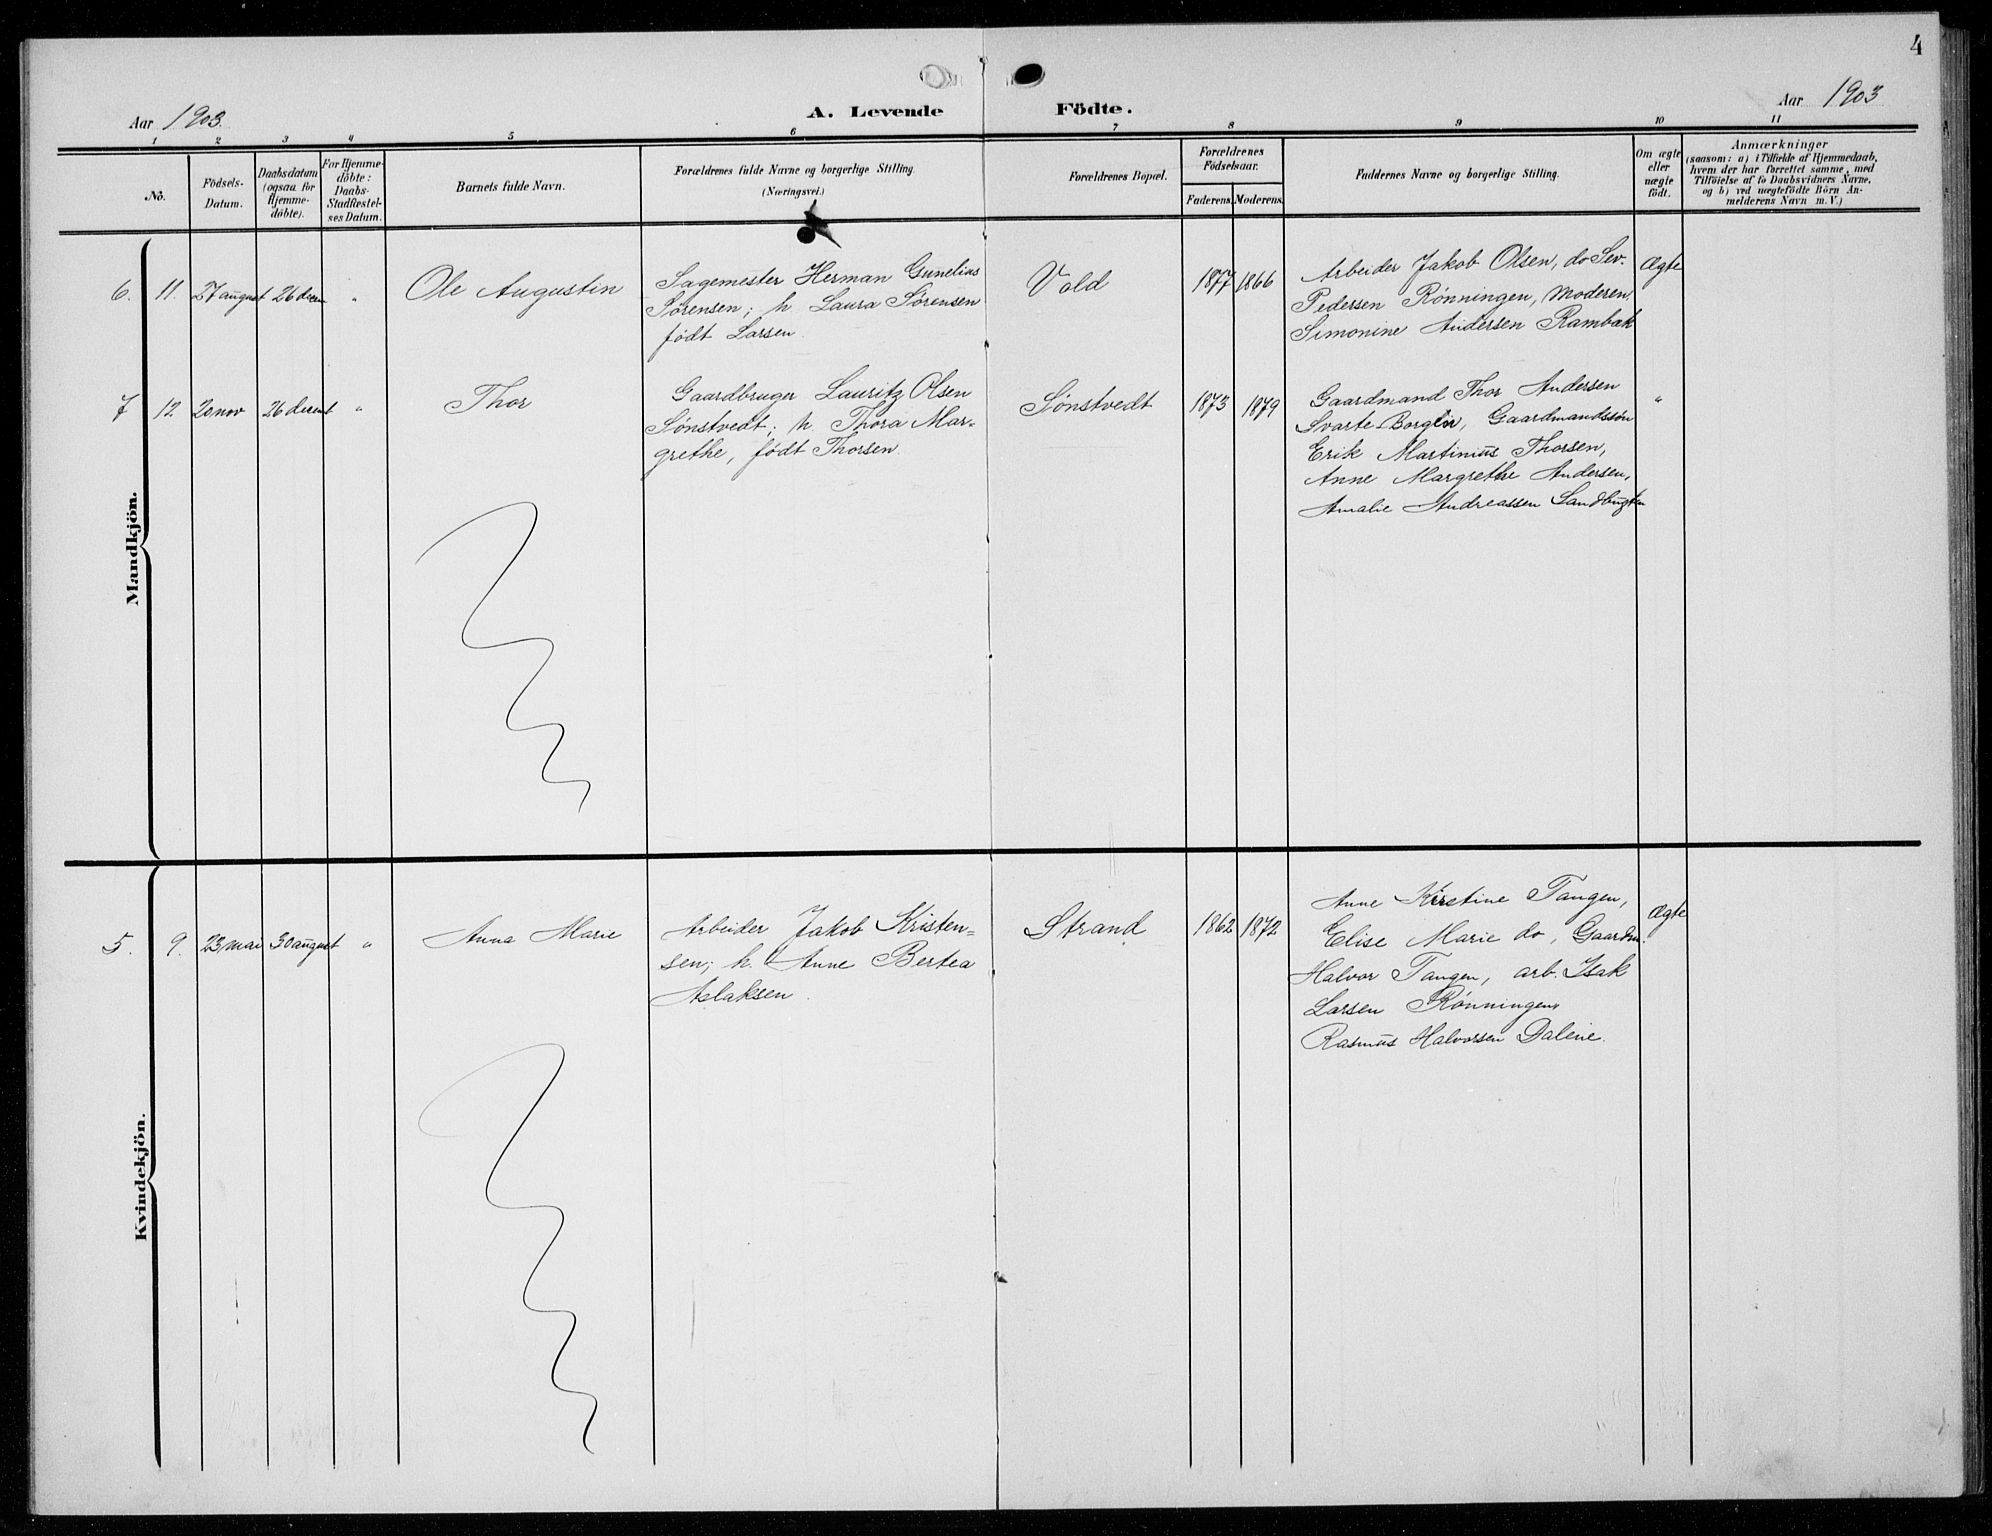 4
Aar 1903.
A. Levende Födte.
Aar 1903
1 2 3 4 5 6 7 8 9 10 11
No.
Födsels-
Datum.
Daabsdatum
(ogsaa for
Hjemme-
döbte).
For Hjemme-
döbte:
Daabs-
Stadfæstel-
ses Datum.
Barnets fulde Navn.
Forældrenes fulde Navne og borgerlige Stilling.
(Næringsvei.)
Forældrenes Bopæl.
Forældrenes
Födselsaar.
Faderens. Moderens.
Faddernes Navne og borgerlige Stilling.
Om ægte
eller
uægte
födt.
Anmærkninger
(saasom: a) i Tilfælde af Hjemmedaab,
hvem der har forrettet samme, med
Tilföielse af to Daabsvidners Navne,
og b) ved uægtefödte Börn An-
melderens Navn m. V.)
Mandkjön.
6. 11. 27 august 26 decem "
Ole Augustin
Sagemester Herman Gunelius
Sørensen; h. Laura Sørensen
født Larsen.
Vold
1877 1866
Arbeider Jakob Olsen, do Sev.
Pedersen Rønningen, Moderen,
Simonine Andersen Rambæk
Ægte
7 12. 20 nov 26 decemb "
Thor
Gaardbruger Lauritz Olsen
Sønstvedt; h. Thora Mar-
grethe, født Thorsen.
Sønstvedt
1873 1879
Gaardmand Thor Andersen
Svarte-Borgen, Gaardmandssøn
Erik Martinius Thorsen,
Anne Margrethe Andersen,
Amalie Andreassen Sandbugten
"
Kvindekjön.
5. 9. 23 mai 30 august "
Anna Marie
Arbeider Jakob Kristen-
sen; h. Anne Bertea
Aslaksen.
Strand
1862 1872
Anne Kirstine Tangen,
Elise Marie do, Gaardm.
Halvor Tangen, arb. Isak
Larsen Rønningen,
Rasmus Halvorsen Dalene.
Ægte